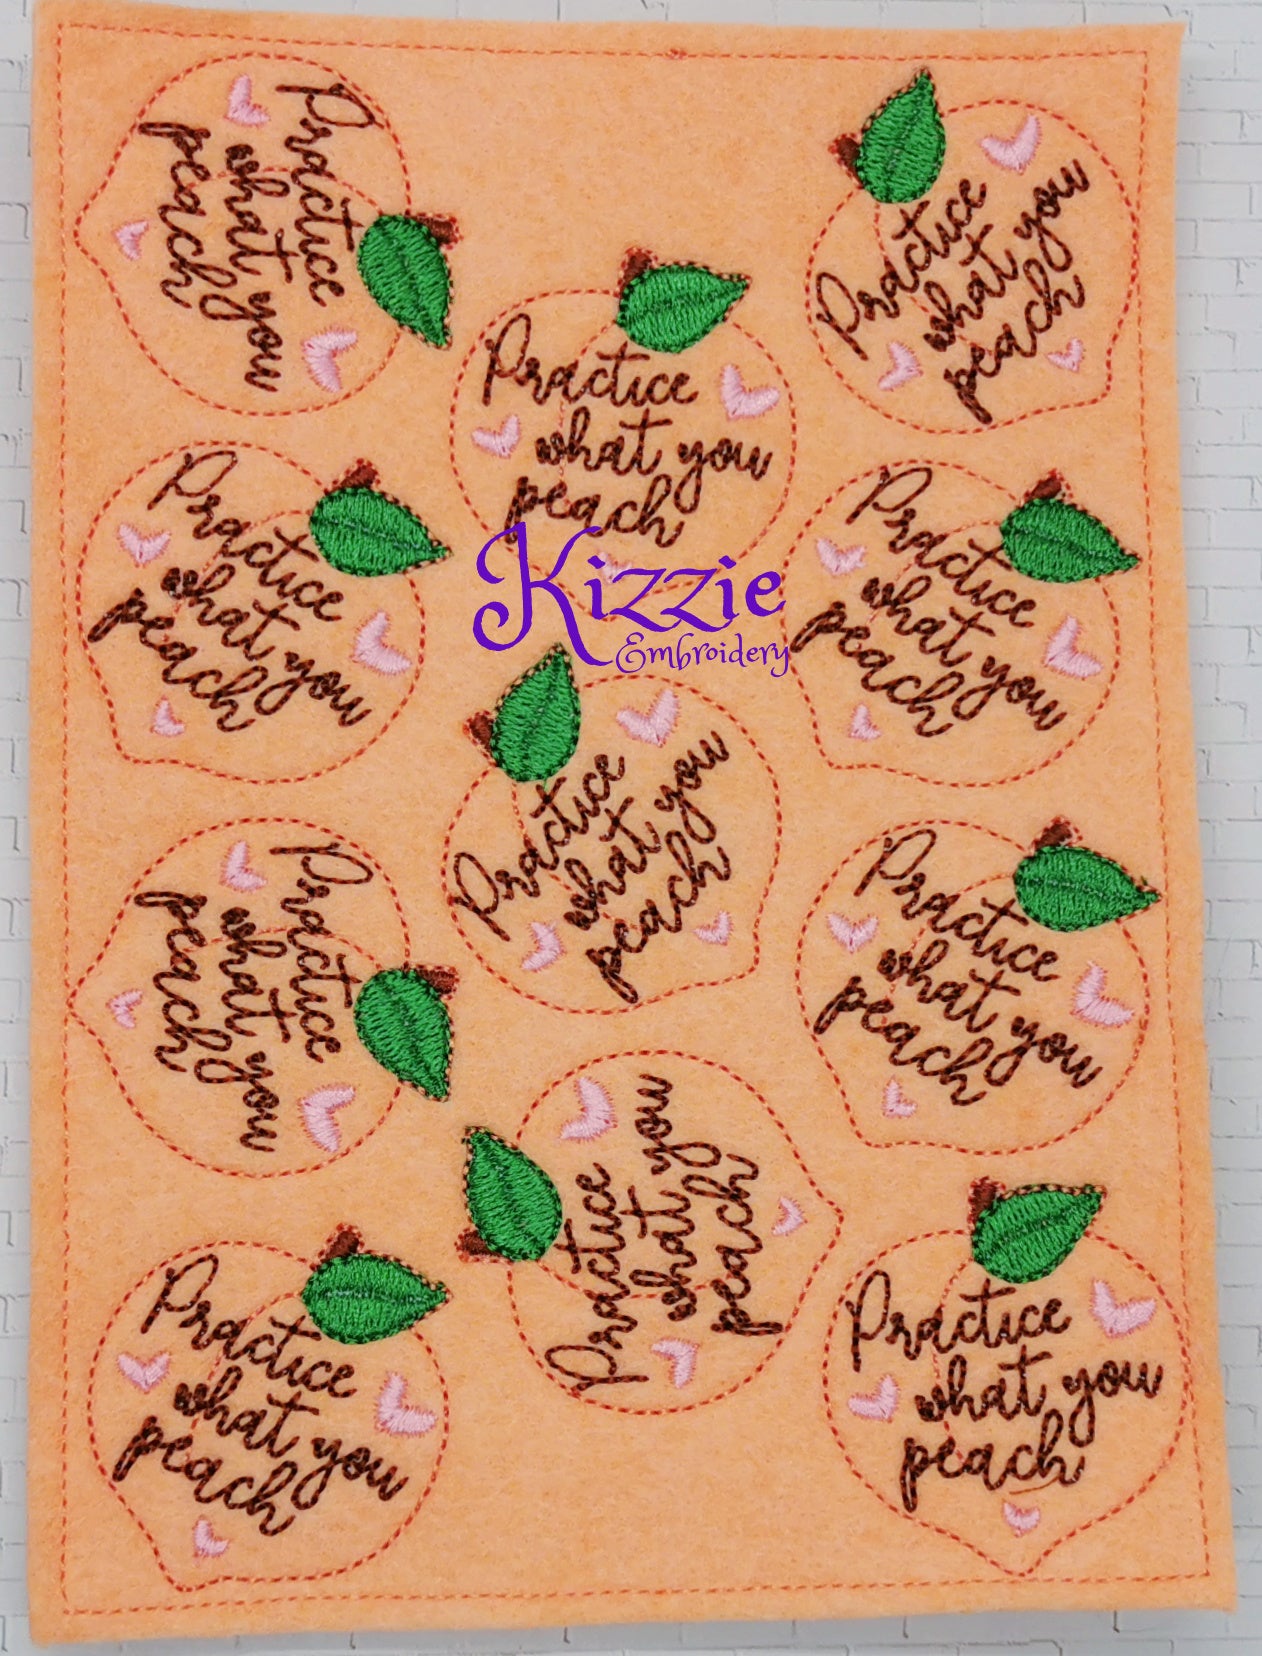 Practice
what you
peach
Practice
what you
peach
Practice
what you
peach
Practice
what you
peach
Practice
what you
peach
Kizzie
Embroidery
Practice
what you
peach
Practice
what you
peach
Practice
what you
peach
Practice
what you
peach
Practice
what you
peach
Practice
what you
peach